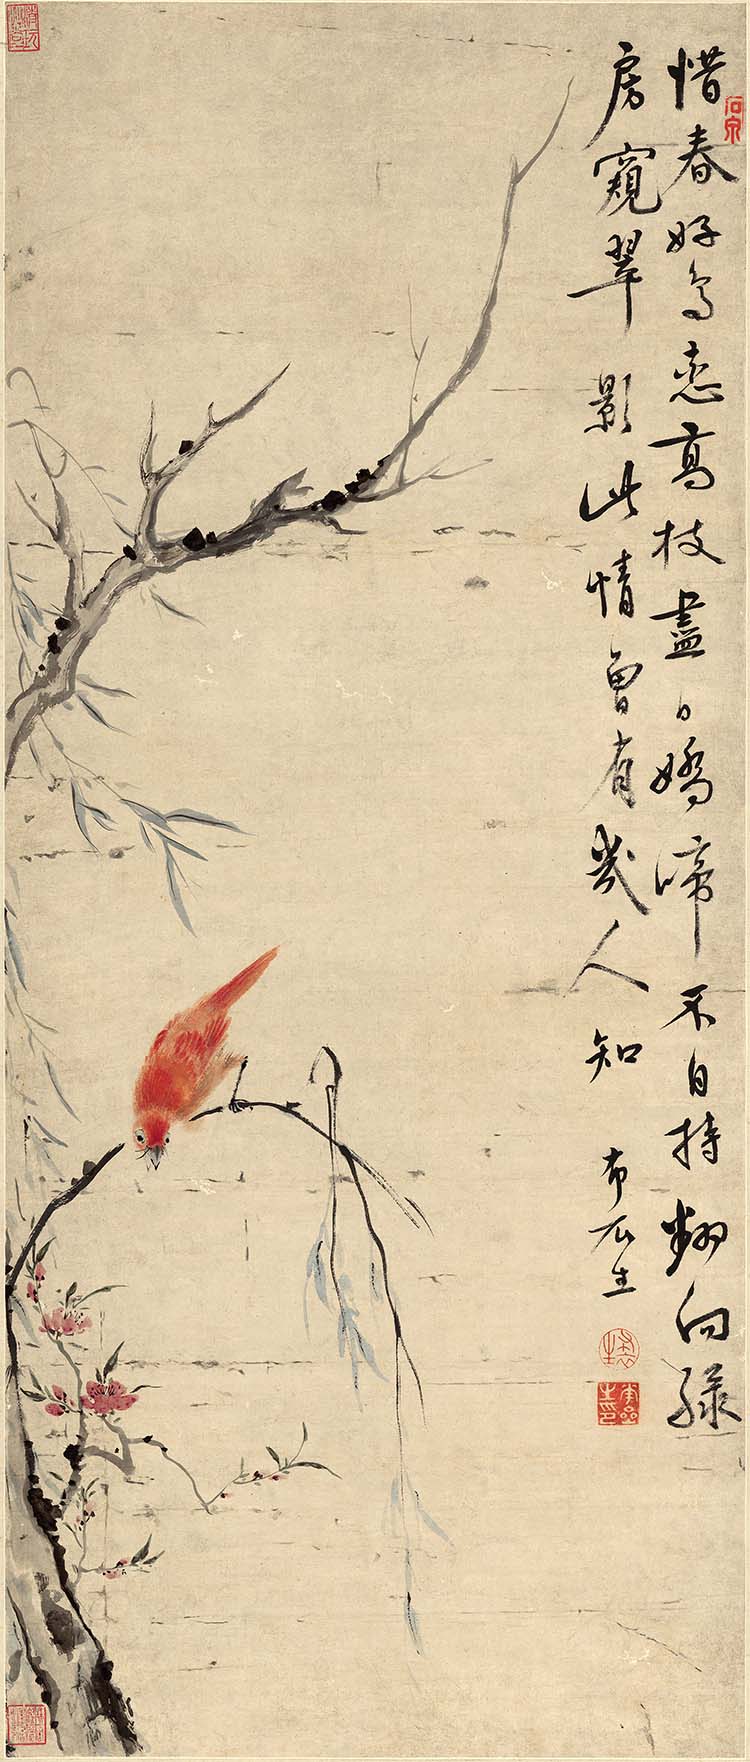 惜春好鳥戀高枝盡日嬌啼不自持翻向綠
房窺翠影此情曾有幾人知
布衣生